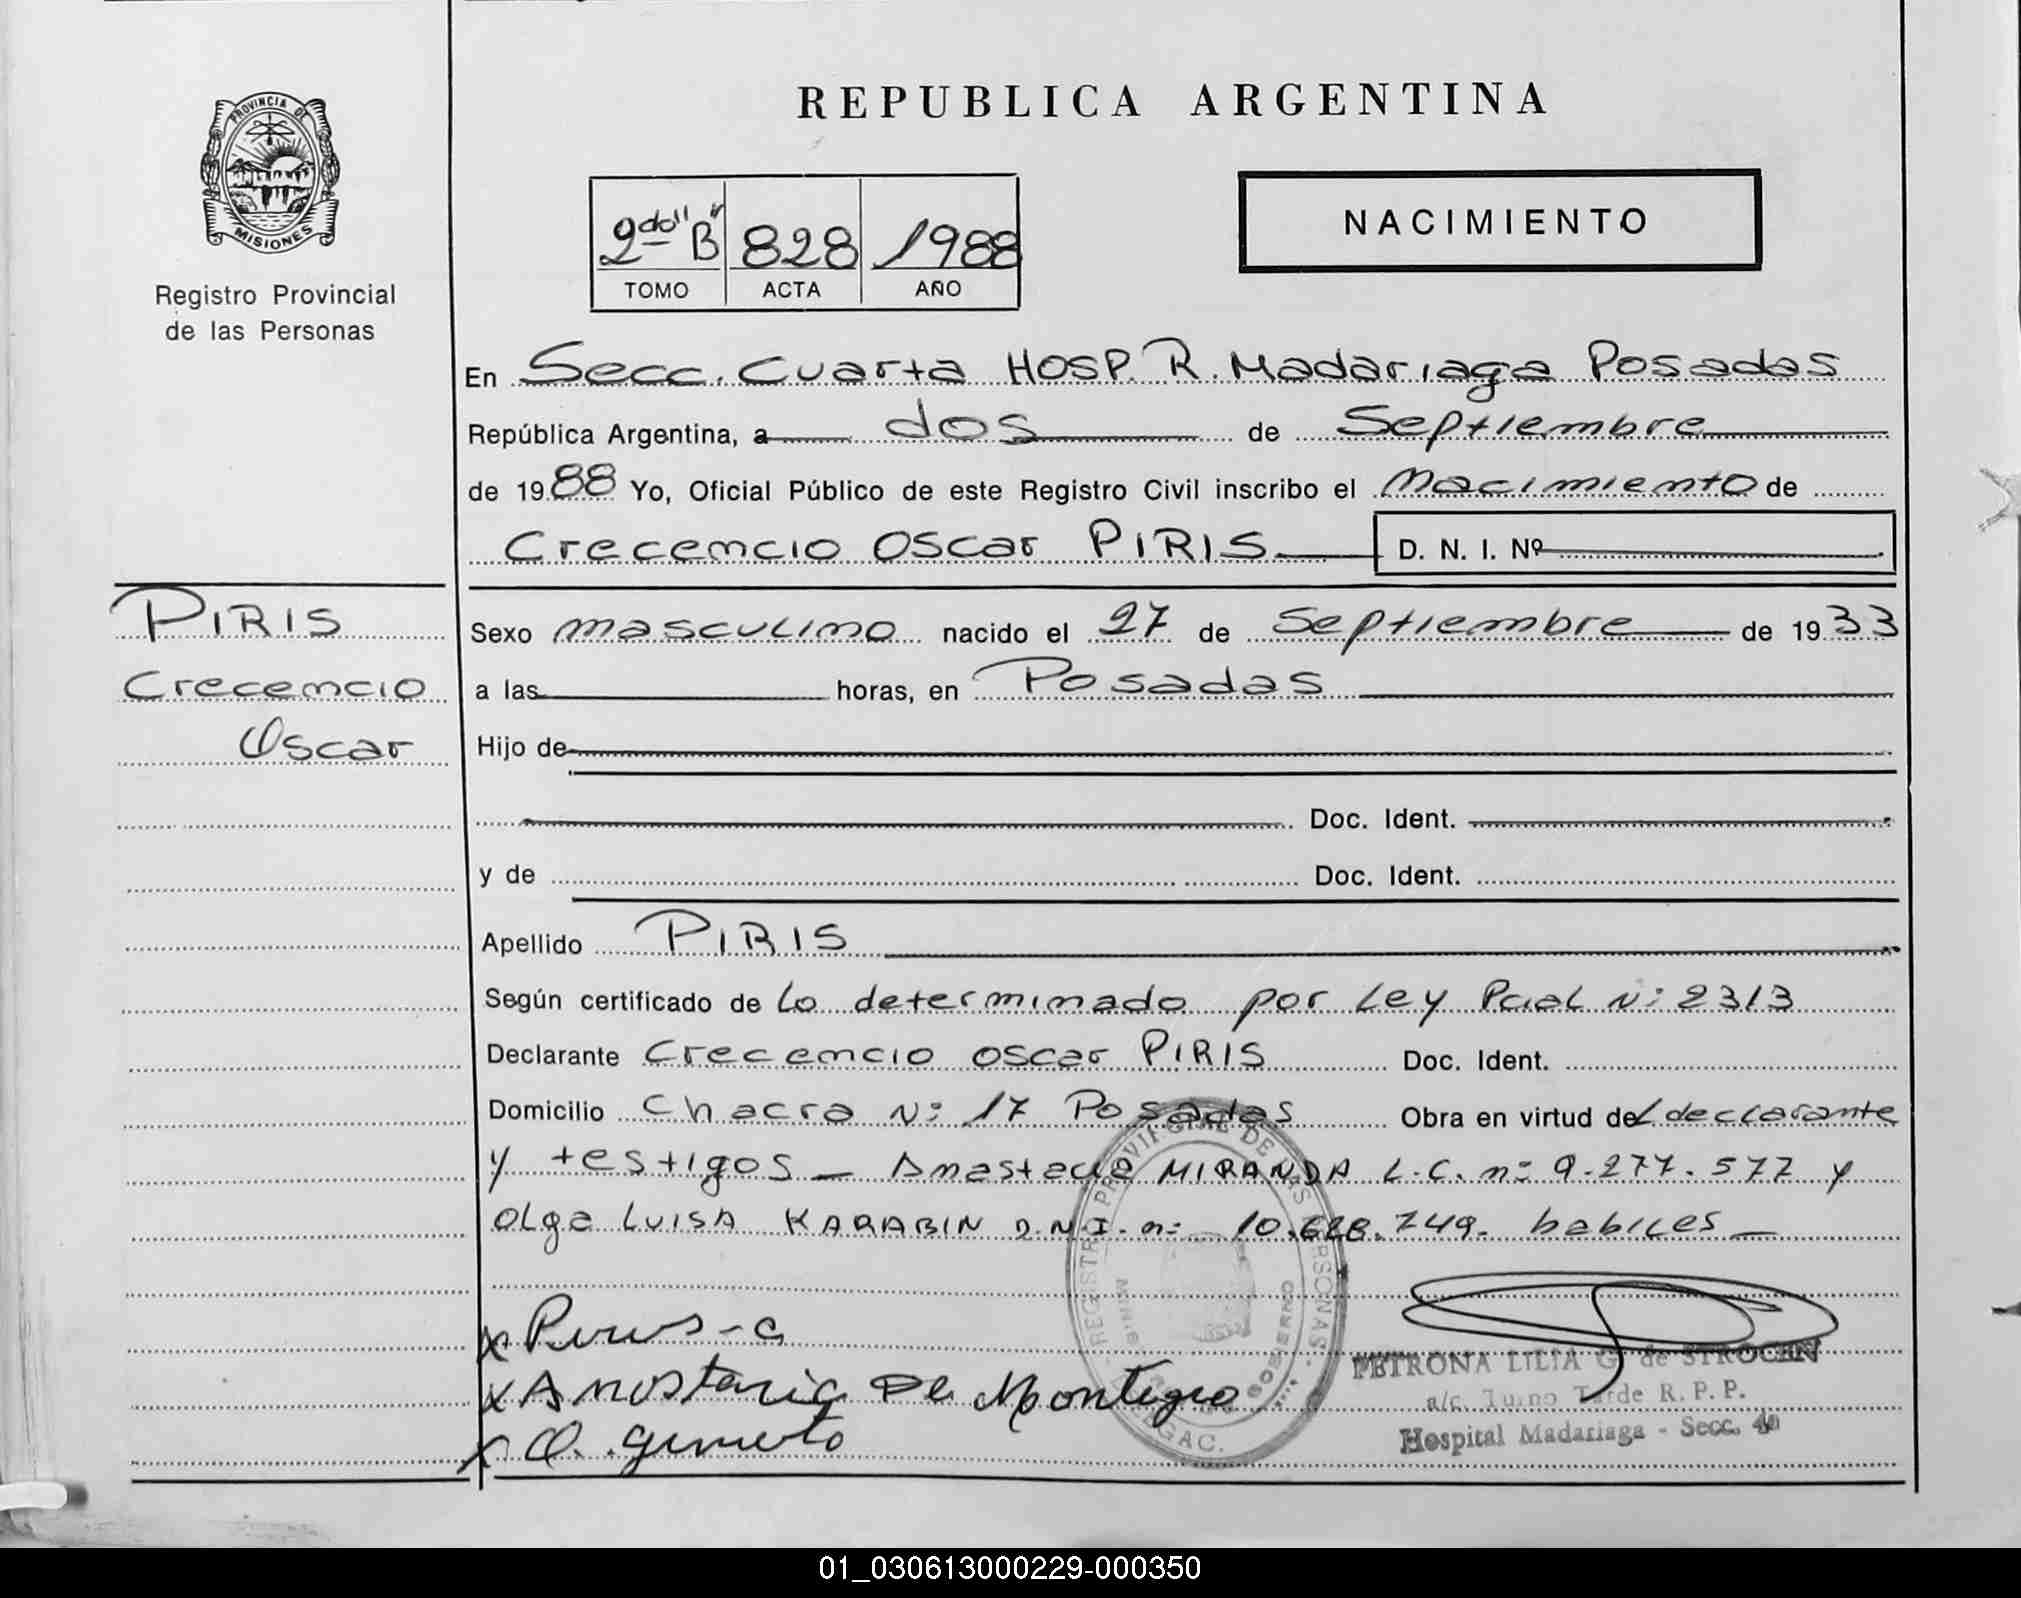 PROVINCIA DE
MISIONES
Registro Provincial
de las Personas
REPUBLICA ARGENTINA
2do "B" 828 1988
TOMO ACTA AÑO
NACIMIENTO
En Secc. Cuarta HOSP. R. Madariaga Posadas
República Argentina, a dos de Septiembre
de 1988 Yo, Oficial Público de este Registro Civil inscribo el Nacimiento de
Crecencio Oscar PIRIS D. N. I. Nº
PIRIS
Crecencio
Oscar
Sexo masculino nacido el 27 de Septiembre de 1933
a las horas, en Posadas
Hijo de
Doc. Ident.
y de Doc. Ident.
Apellido PIRIS
Según certificado de Lo determinado por Ley Pcial N: 2313
Declarante Crecencio oscar PIRIS Doc. Ident.
Domicilio Chacra N: 17 Posadas Obra en virtud del declarante
y testigos — Anastacia MIRANDA L.C. n: 9.277.577 y
olga LUISA KARABIN D.N.I. n: 10.628.749. habiles —
x Piris - c
x Anastacia De Montegro
x O.
REGISTRO PROVINCIAL DE LAS PERSONAS
GOBIERNO
PETRONA LILIA G. de STROCEN
a/c. Turno Tarde R. P. P.
Hospital Madariaga - Secc. 4a
01_030613000229-000350